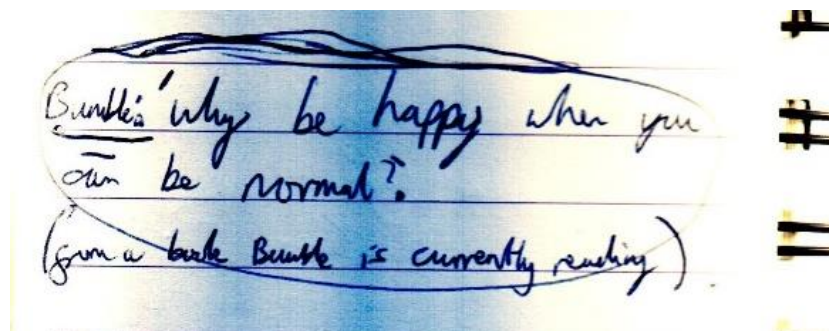 Bumble's 'why be happy when you
can be normal?'
(from a book Bumble is currently reading).